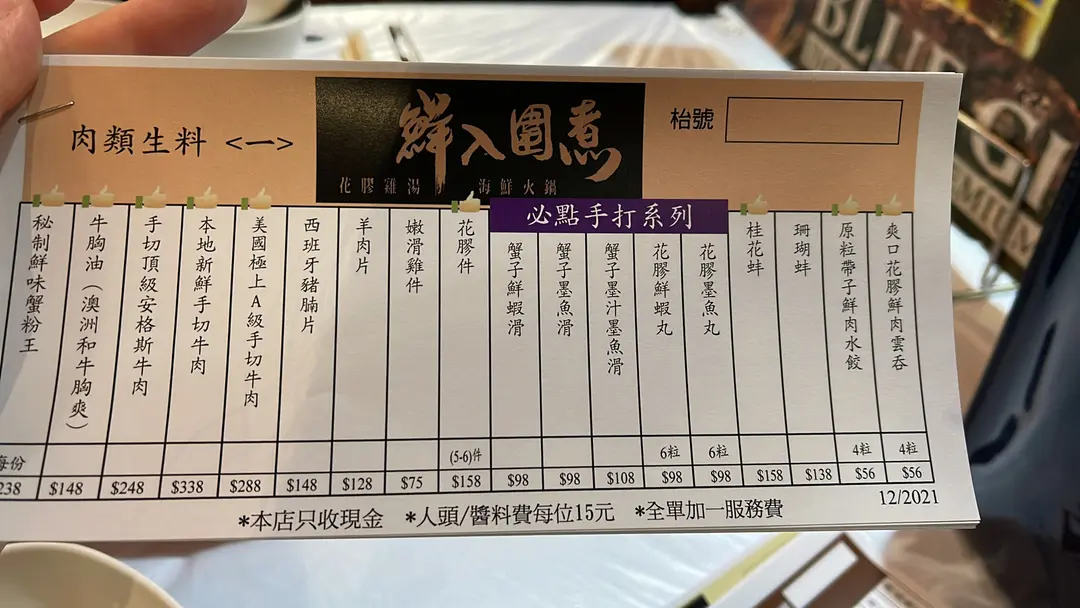 肉類生料 <一>
鮮入圍煮
花膠雞湯
海鮮火鍋
枱號
必點手打系列
爽口花膠鮮肉雲吞
4粒
$56
原粒帶子鮮肉水餃
4粒
$56
珊瑚蚌
$138
桂花蚌
$158
花膠墨魚丸
6粒
$98
花膠鮮蝦丸
6粒
$98
蟹子墨汁墨魚滑
$108
蟹子墨魚滑
$98
蟹子鮮蝦滑
$98
花膠件
(5-6)件
$158
嫩滑雞件
$75
羊肉片
$128
西班牙豬腩片
$148
美國極上A級手切牛肉
$288
本地新鮮手切牛肉
$338
手切頂級安格斯牛肉
$248
牛胸油（澳洲和牛胸爽）
$148
秘制鮮味蟹粉王
每份
238
*本店只收現金 *人頭/醬料費每位15元 *全單加一服務費
12/2021
BLUE
GI
EMIUM